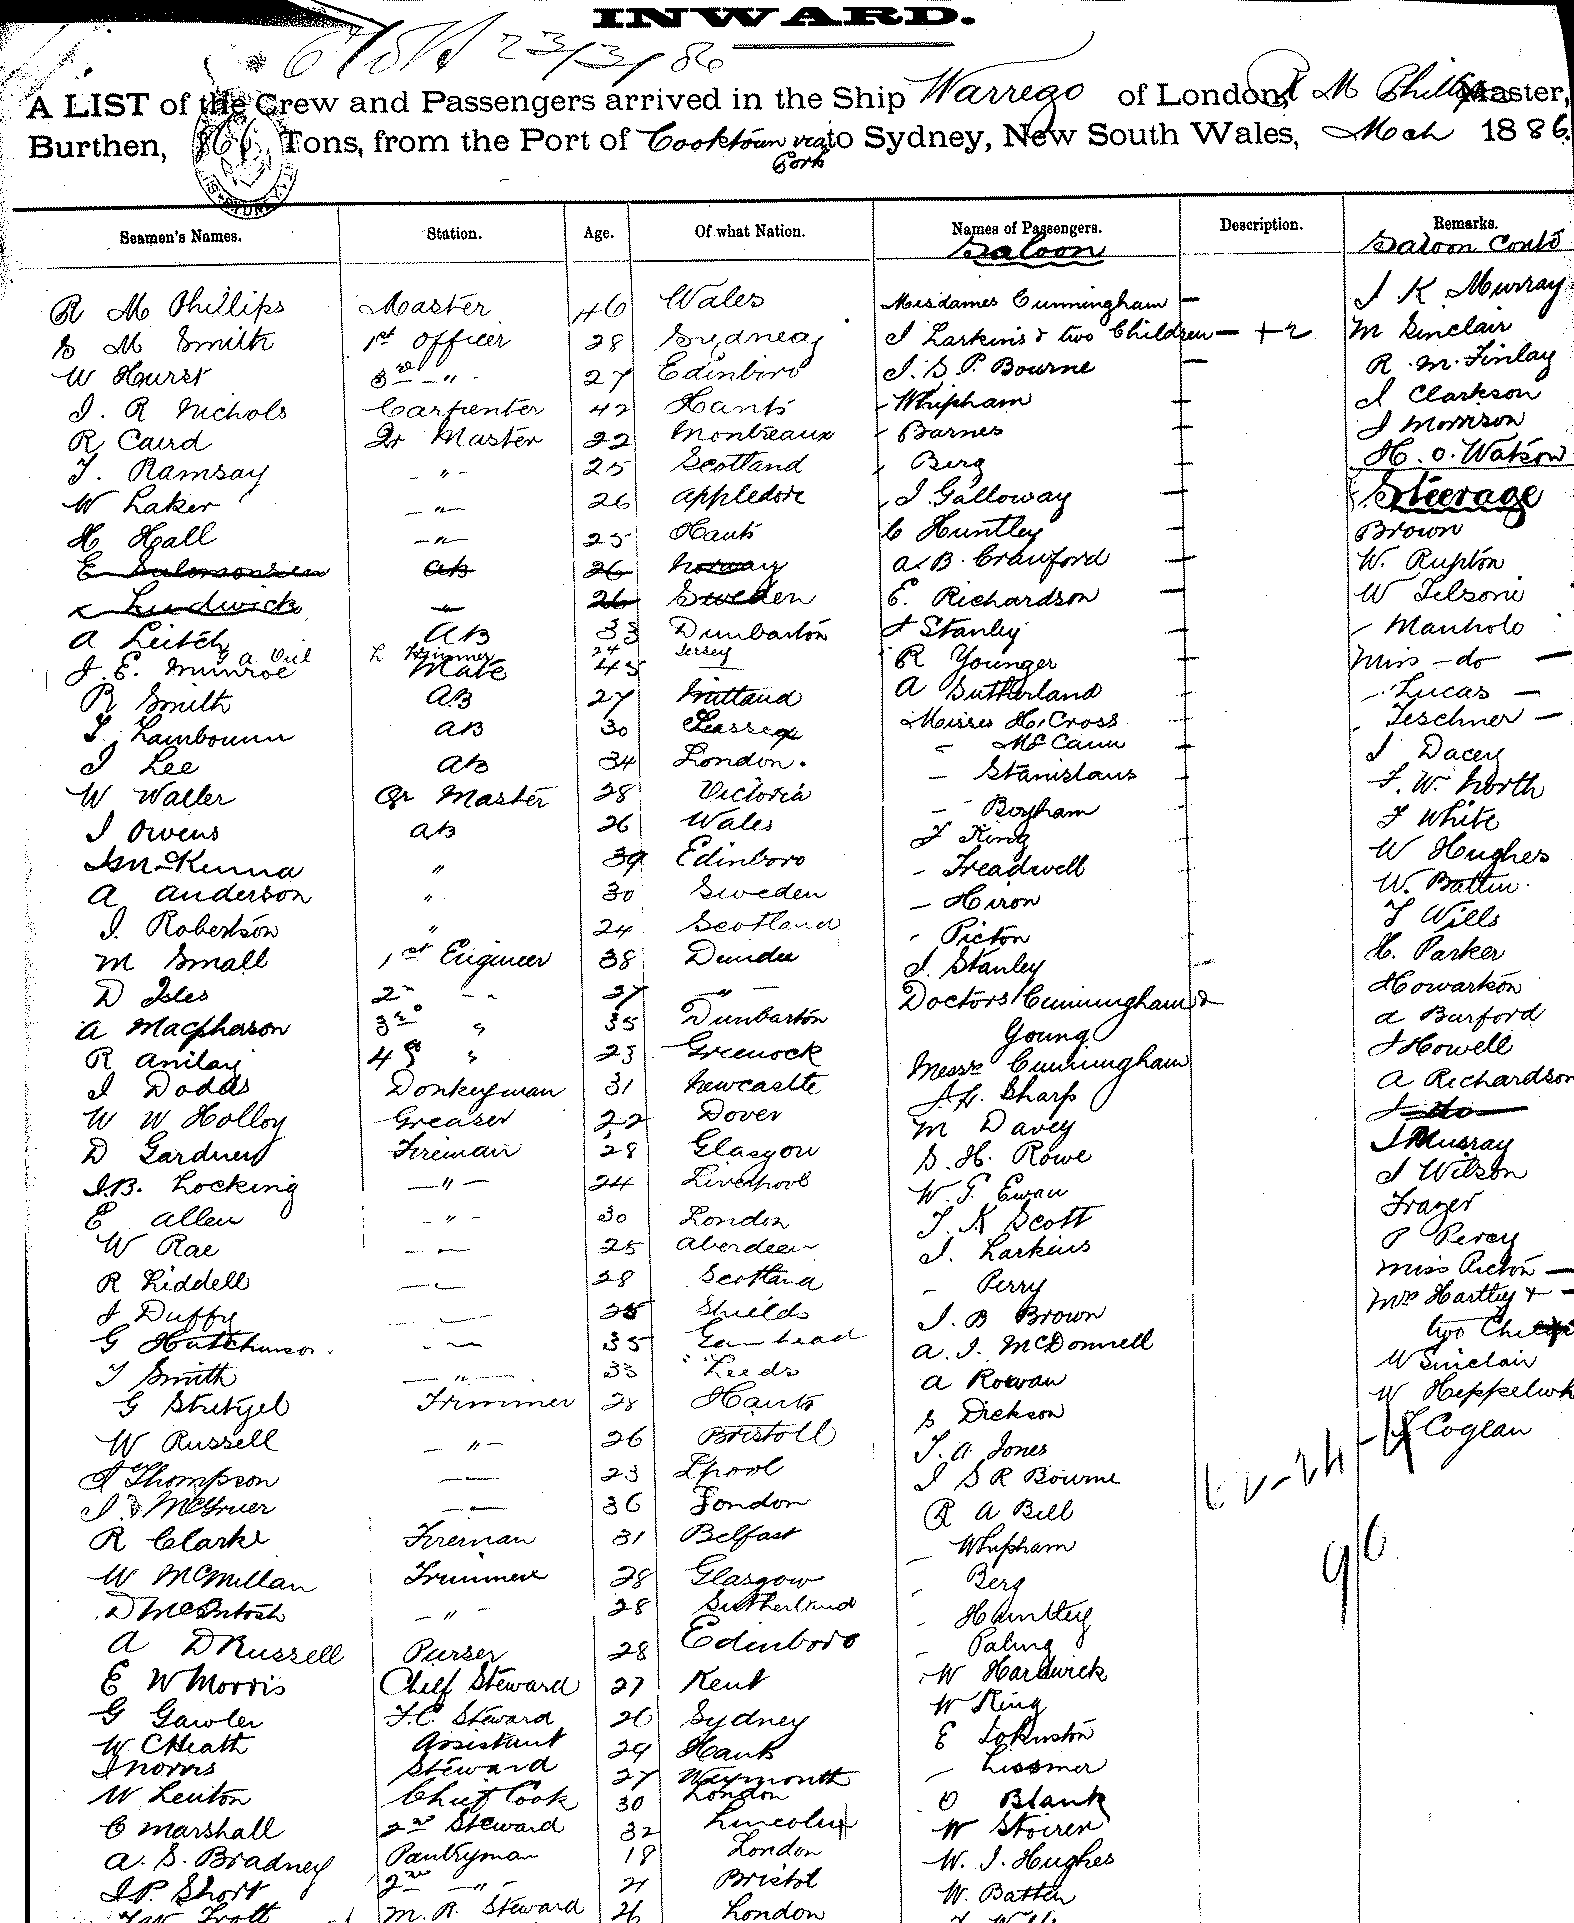 INWARD.
23/3/86
A LIST of the Crew and Passengers arrived in the Ship Warrego of London, R M Phillips Master,
Burthen, Tons, from the Port of Cooktown via to Sydney, New South Wales, Mch 1886.
Seamen's Names. Station. Age. Of what Nation. Names of Passengers. Description. Remarks.
Saloon Saloon Contd
R M Phillips Master 46 Wales Mesdames Cunningham — J K Murray
S M Smith 1st Officer 28 Sydney J Larkins & two Children — + 2 M Sinclair
W Hurst 3rd — " 27 Edinboro J. S. P. Bourne — R. M. Finlay
J. R Nichols Carpenter 42 Hants - Whipham — J Clarkson
R Caird Qr Master 22 - Barnes — J Morrison
T. Ramsay - " - 25 Scotland Berg — H. O. Watson
W Laker — " — 26 Appledore J Galloway — Steerage
H Hall — " — 25 Hants C Huntley — Brown
E AB 26 Norway A. B. Crawford — W. Rupton
Ludwick 26 Sweden E. Richardson — W
A Leitch AB 33 Dunbarton J Stanley — - Manholo
24 Jersey
J. E. Munroe Mate 45 R Younger — Miss - do —
R Smith AB 27 A Sutherland — - Lucas —
T. Lambourn AB 30 Misses H. Cross — Teschner —
J Lee AB 34 London. - McCann — J Dacey
W Waller Qr Master 28 Victoria - Stanislaus — F. W. North
J Owens AB 26 Wales - Boyham — F White
J McKenna " 39 Edinboro J King W Hughes
A Anderson " 30 Sweden - Treadwell W. Batten.
J. Robertson " 24 Scotland - Hiron T Wills
M Small 1st Engineer 38 Dundee - Picton H. Parker
D Isles 2 - - 27 — " — J. Stanley — Howarton
A Macpherson 3rd " 35 Dunbarton Doctors Cunningham & A Burford
R 4th " 23 Greenock Young J Howell
J Dodds Donkeyman 31 Newcastle Messrs Cunningham A Richardson
W W Holloy Greaser 22 Dover Sharp J do
D Gardner Fireman 28 Glasgow M Davey J Murray
J. B. Locking — " — 24 Liverpool S. H. Rowe J Wilson
E Allen - " - 30 London W. T. Ewan Frazer
W Rae — — 25 Aberdeen T. K Scott P Percy
R Liddell — — 28 Scotland J. Larkins Miss Picton —
J Duffy — 25 Shields - Perry Mrs Hartley & —
G Hutchinson. - — 35 J. B Brown two
T Smith — " — 33 Leeds A. J. McDonnell W Sinclair
G Trimmer 28 Hants A Rowan W
W Russell — " — 26 Bristoll S Dickson Coglan
J Thompson — 23 Lpool T. A. Jones
J McGruer — 36 London J S R Bourne
R Clark Fireman 31 Belfast R A Bell
W McMillan Trimmer 28 Glasgow - Whipham
D McIntosh — " 28 Sutherland - Berg
A D Russell Purser 28 Edinboro - Huntley
E W Morris Chief Steward 27 Kent - Paling
G Gawler F.C. Steward 26 Sydney W Hardwick
W C Heath Assistant 29 Hants W King
J Norris Steward 27 Weymouth E Johnston
W Lenton Chief Cook 30 London - Lissmer
C Marshall 2nd Steward 32 Lincoln O Blank
A. S. Bradney Pantryman 18 London W
J P. Short 2nd — " — 21 Bristol W. J. Hughes
Trott M. R. Steward 26 London W. Batten
96